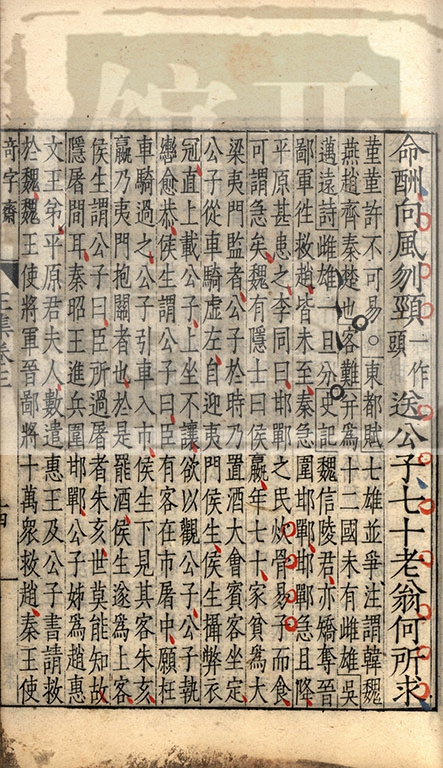 命酬向風刎頸一作頭送公子七十老翁何所求
菫菫許不可易○東都賦七雄並爭注謂韓魏
燕趙齊秦楚也客難并爲十二國未有雌雄吳
邁遠詩雌雄一旦分史記魏信陵君亦矯奪晉
鄙軍往救趙皆未至秦急圍邯鄲邯鄲急且降
平原甚患之李同曰邯鄲之民炊骨易子而食
可謂急矣魏有隱士曰侯嬴年七十家貧爲大
梁夷門監者公子於時乃置酒大會賓客坐定
公子從車騎虛左自迎夷門侯生侯生攝弊衣
冠直上載公子上坐不讓欲以觀公子公子執
轡愈恭侯生謂公子曰臣有客在市屠中願枉
車騎過之公子引車入市侯生下見其客朱亥
嬴乃夷門抱關者也於是罷酒侯生遂爲上客
侯生謂公子曰臣所過屠者朱亥世莫能知故
隱屠間耳秦昭王進兵圍邯鄲公子姊爲趙惠
文王弟平原君夫人數遺惠王及公子書請救
於魏魏王使將軍晉鄙將十萬衆救趙秦王使
奇字齋